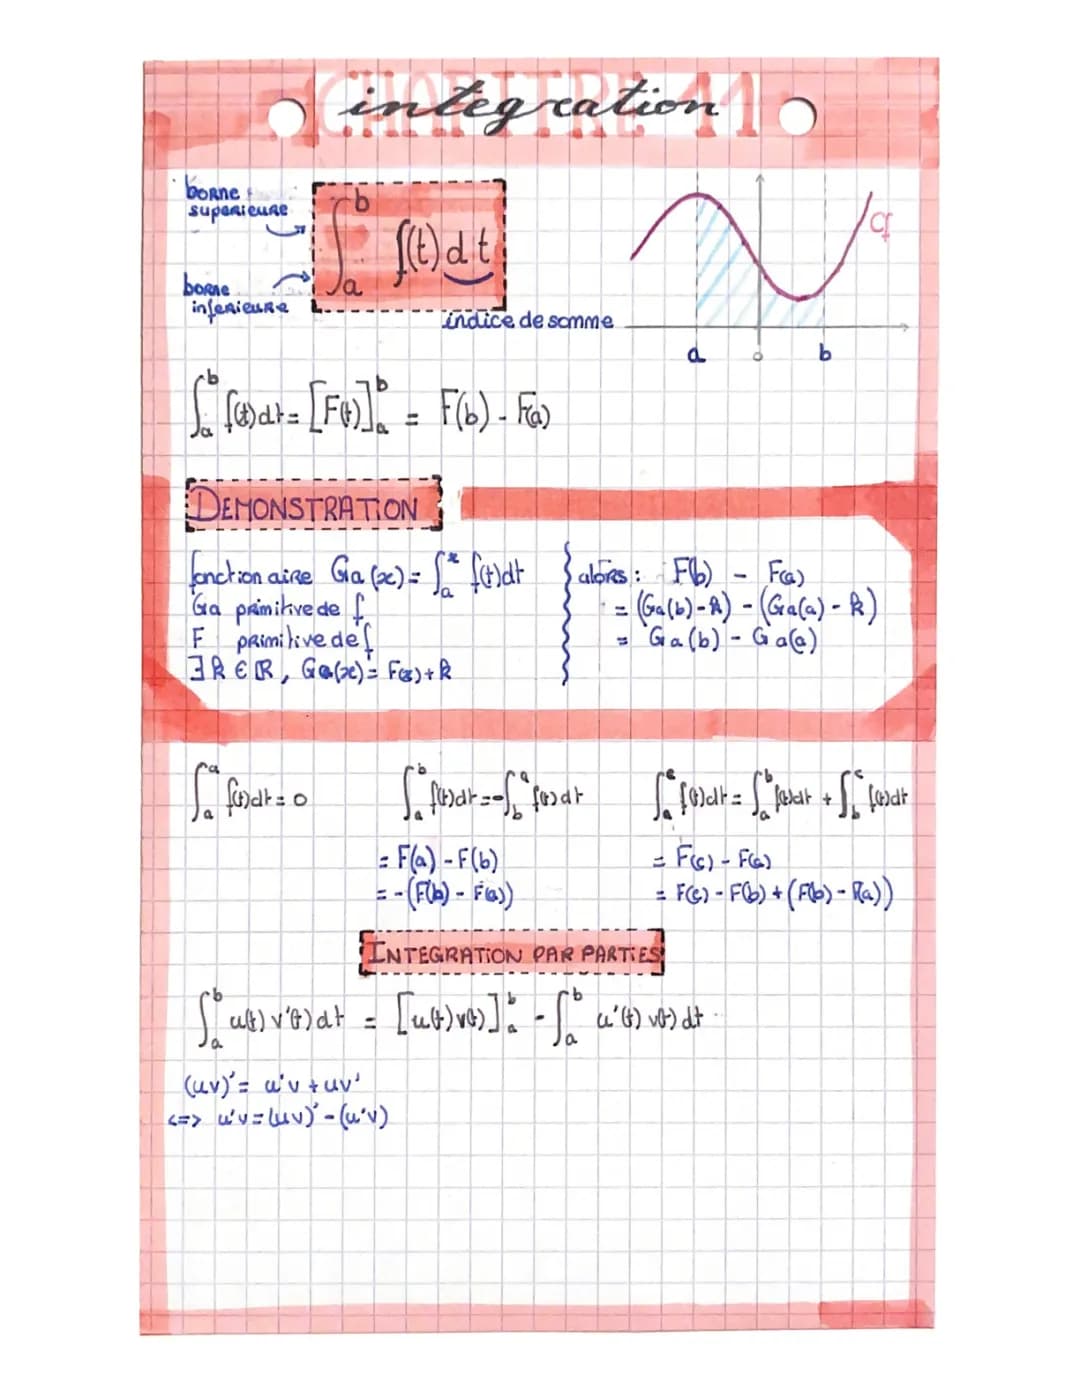 CHAPITRE 11
integration
borne
superieure
∫_a^b f(t)dt
borne
inferieure
indice de somme
Cf
a o b
∫_a^b f(t)dt = [F(t)]_a^b = F(b) - F(a)
DEMONSTRATION
fonction aire Ga(x) = ∫_a^x f(t)dt
Ga primitive de f
F primitive de f
∃k∈ℝ, Ga(x) = F(x) + k
alors : F(b) - F(a)
= (Ga(b) - k) - (Ga(a) - k)
= Ga(b) - Ga(a)
∫_a^a f(t)dt = 0
∫_a^b f(t)dt = -∫_b^a f(t)dt
= F(a) - F(b)
= -(F(b) - F(a))
∫_a^c f(t)dt = ∫_a^b f(t)dt + ∫_b^c f(t)dt
= F(c) - F(a)
= F(c) - F(b) + (F(b) - F(a))
INTEGRATION PAR PARTIES
∫_a^b u(t) v'(t) dt = [u(t)v(t)]_a^b - ∫_a^b u'(t) v(t) dt
(uv)' = u'v + uv'
<=> u'v = (uv)' - (u'v)